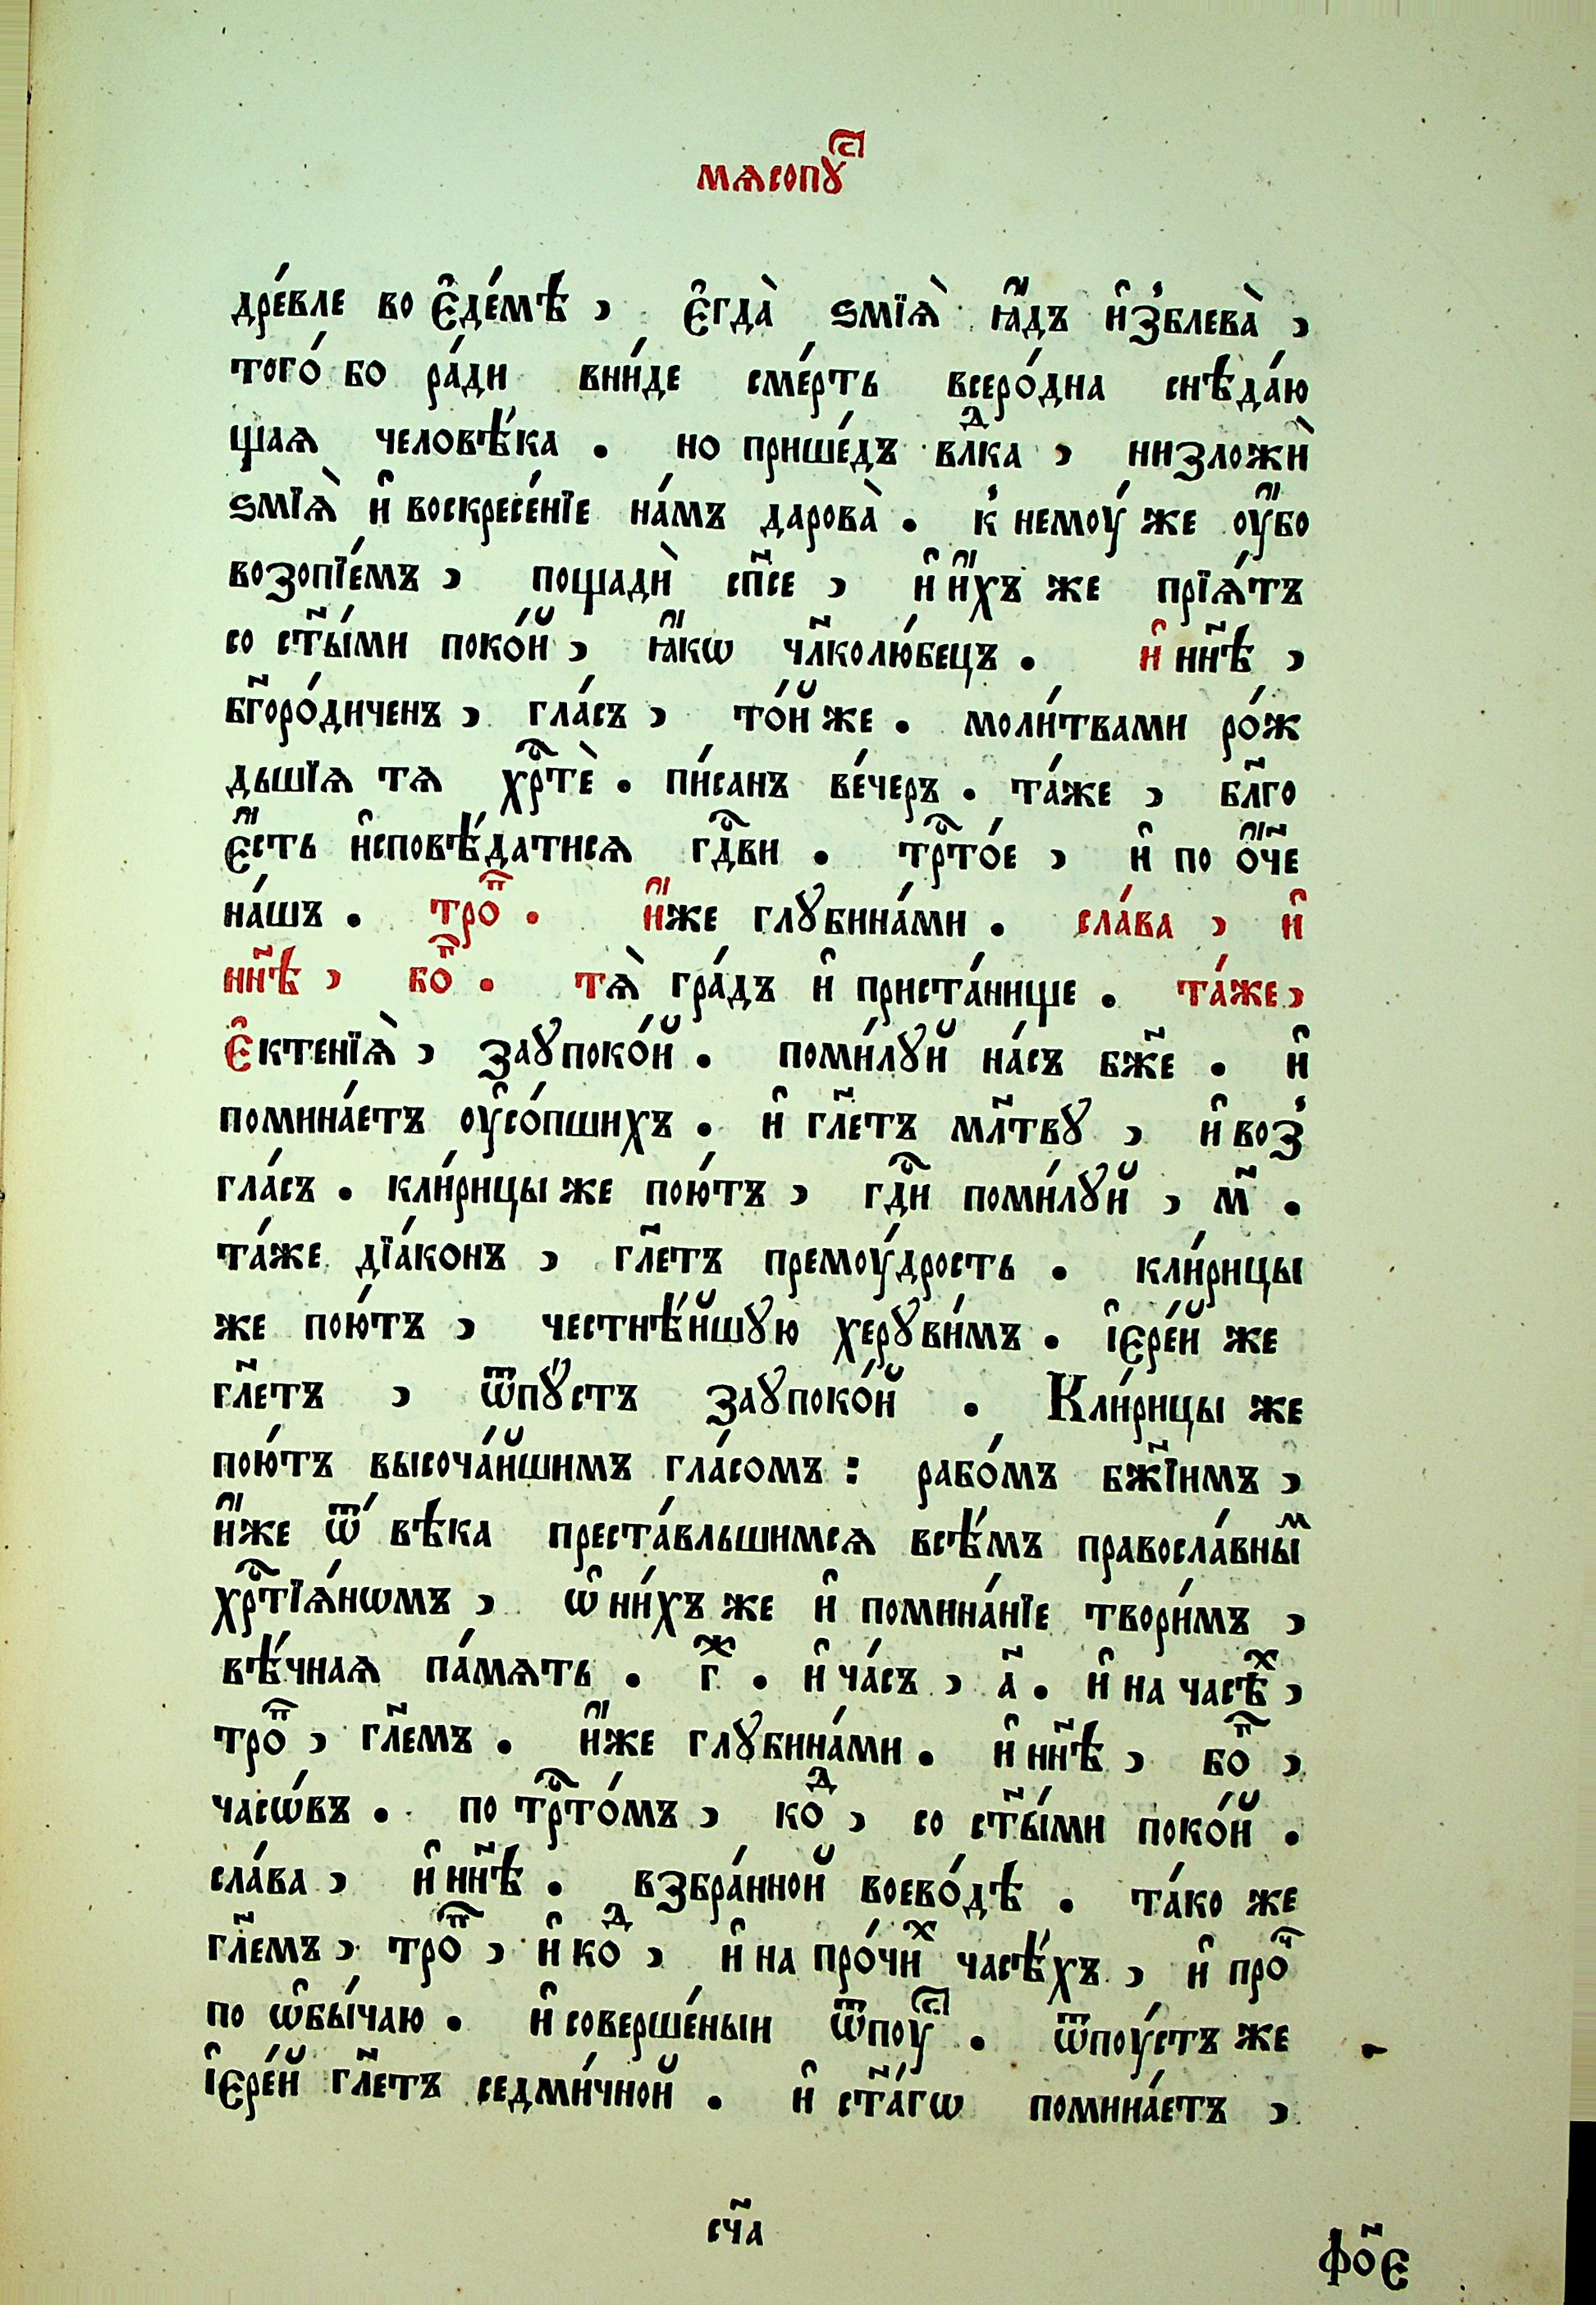 мѧсопꙋⷭ҇
дре́вле во є҆де́мѣ , є҆гда̀ ѕмїѧ̀ ꙗ҆́дъ и҆з̾блева̀ ,
того́ бо ра́ди вни́де сме́рть всеро́дна снѣда́ю
щаѧ человѣ́ка . но прише́дъ влⷣка , низложѝ
ѕмїѧ̀ и҆ воскресе́нїе на́мъ дарова̀ . к̾ немоу́ же оу҆́бо
возопїе́мъ , пощадѝ сп҃се , и҆ и҆́хъ же прїѧ́тъ
со ст҃ы́ми поко́й , ꙗ҆́кѡ чл҃колю́бецъ . и҆ нн҃ѣ ,
бг҃оро́диченъ , гла́съ , то́й же . моли́твами ро́ж
дьшїѧ тѧ хрⷭ҇тѐ . пи́санъ ве́черъ . та́же , бл҃го
є҆́сть и҆сповѣ́датисѧ гдⷭ҇ви . трⷭ҇то́е , и҆ по ѻ҆́ч҃е
на́шъ . тро́ⷫ҇ . и҆́же глꙋбина́ми . сла́ва , и҆
нн҃ѣ , бо́ⷫ҇ . тѧ̀ гра́дъ и҆ приста́нище . та́же ,
є҆ктенїѧ̀ , заꙋпоко́й . поми́лꙋй на́съ бж҃е . и҆
помина́етъ оу҆со́пшихъ . и҆ гл҃етъ мл҃твꙋ , и҆ воз̾
гла́съ . кли́рицы же пою́тъ , гдⷭ҇и поми́лꙋй , м҃ .
та́же дїа́конъ , гл҃етъ премоу́дрость . кли́рицы
же пою́тъ , честнѣ́йшꙋю херꙋви́мъ . і҆єре́й же
гл҃етъ , ѿпꙋ́стъ заꙋпоко́й . Кли́рицы же
пою́тъ высоча́йшимъ гла́сомъ : рабо́мъ бж҃їимъ ,
и҆́же ѿ вѣ́ка преста́вльшимсѧ всѣ́мъ правосла́вныⷨ
хрⷭ҇тїѧ́нѡмъ , ѡ҆ ни́хъ же и҆ помина́нїе твори́мъ ,
вѣ́чнаѧ па́мѧть . гⷤ҇ . и҆ ча́съ , а҃ . и҆ на часѣⷯ ,
тро́ⷫ҇ , гл҃емъ . и҆́же глꙋбина́ми . и҆ нн҃ѣ , бо́ⷫ҇ ,
часѡ́въ . по трⷭ҇то́мъ , коⷣ , со ст҃ы́ми поко́й .
сла́ва , и҆ нн҃ѣ . взбра́нной воево́дѣ . та́ко же
гл҃емъ , тро́ⷫ҇ , и҆ коⷣ , и҆ на про́чиⷯ часѣ́хъ , и҆ про́ⷱ҇
по ѡ҆бы́чаю . и҆ соверше́ныи ѿпоуⷭ҇ . ѿпоу́стъ же
і҆єре́й гл҃етъ седми́чной . и҆ ст҃а́гѡ помина́етъ ,
сч҃а
фо҃є